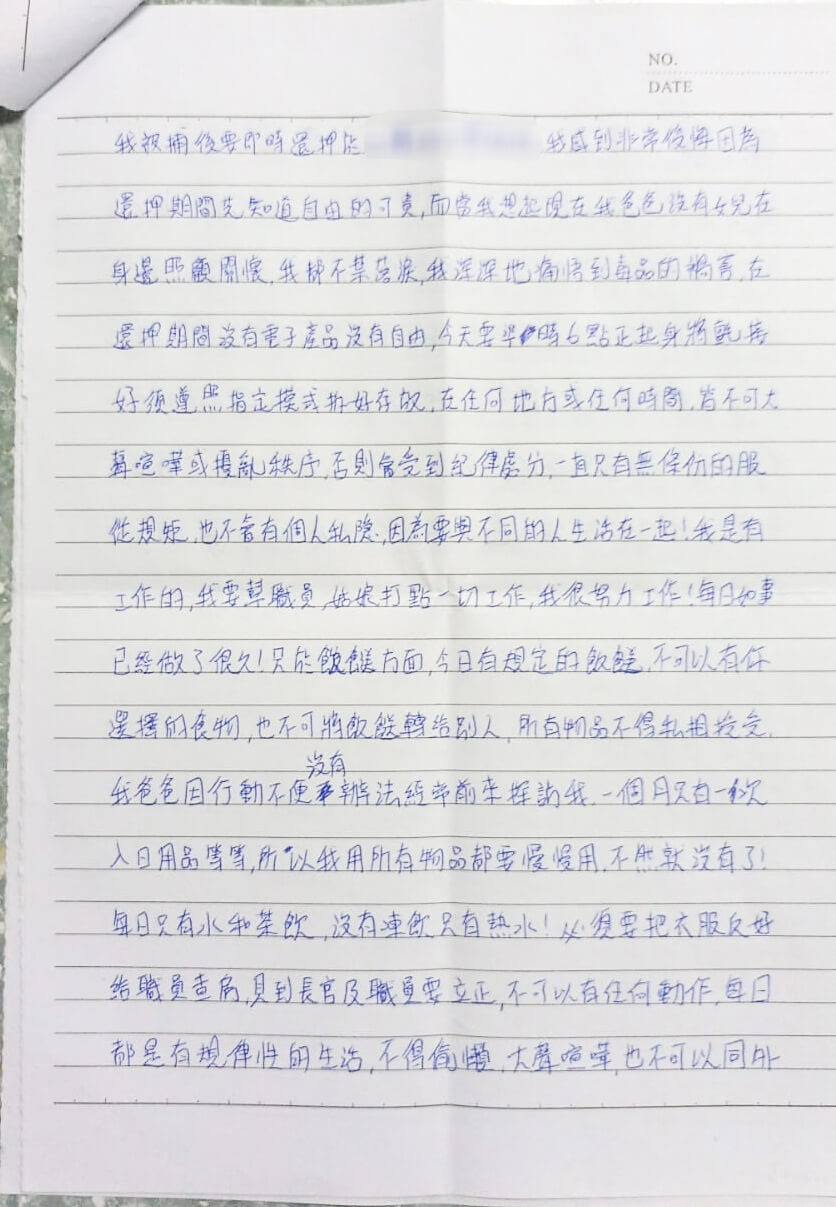 NO.
DATE
我被捕後要即時還押於 我感到非常後悔因為
還押期間先知道自由的可貴,而當我想起現在我爸爸沒有女兒在
身邊照顧關懷,我都不禁落淚,我深深地痛悟到毒品的禍害,在
還押期間沒有電子產品沒有自由,今天要準時6點正起身將氈等
好須遵照指定模式拆好存放,在任何地方或任何時間,皆不可大
聲喧嘩或擾亂秩序,否則會受到紀律處分,一直只有無條份的服
從規矩,也不會有個人私隱,因為要與不同的人生活在一起!我是有
工作的,我要幫職員,姑娘打點一切工作,我很努力工作!每日如事
已經做了很久!只於飯餸方面,今日有規定的飯餸,不可以有任
選擇的食物,也不可將飯餸轉給別人,所有物品不得私相授受,
我爸爸因行動不便沒有辦法經常前來探訪我,一個月只有一次
入日用品等等,所以我用所有物品都要慢慢用,不然就沒有了!
每日只有水和茶飲,沒有凍飲只有熱水!必須要把衣服反好
給職員查房,見到長官及職員要立正,不可以有任何動作,每日
都是有規律性的生活,不得偷懶,大聲喧嘩,也不可以同外